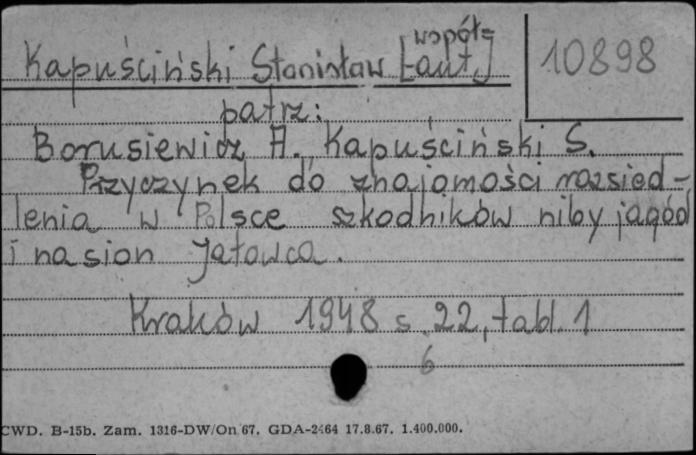 Kapuściński Stanisław [współ-
aut.]
10898
patrz:
Borusiewicz A. Kapuściński S.
Przyczynek do znajomości rozsied-
lenia w Polsce szkodników niby jagód
i nasion Jałowca.
Kraków 1948 s. 22, tabl. 1
6
CWD. B-15b. Zam. 1316-DW/On 67. GDA-2464 17.8.67. 1.400.000.